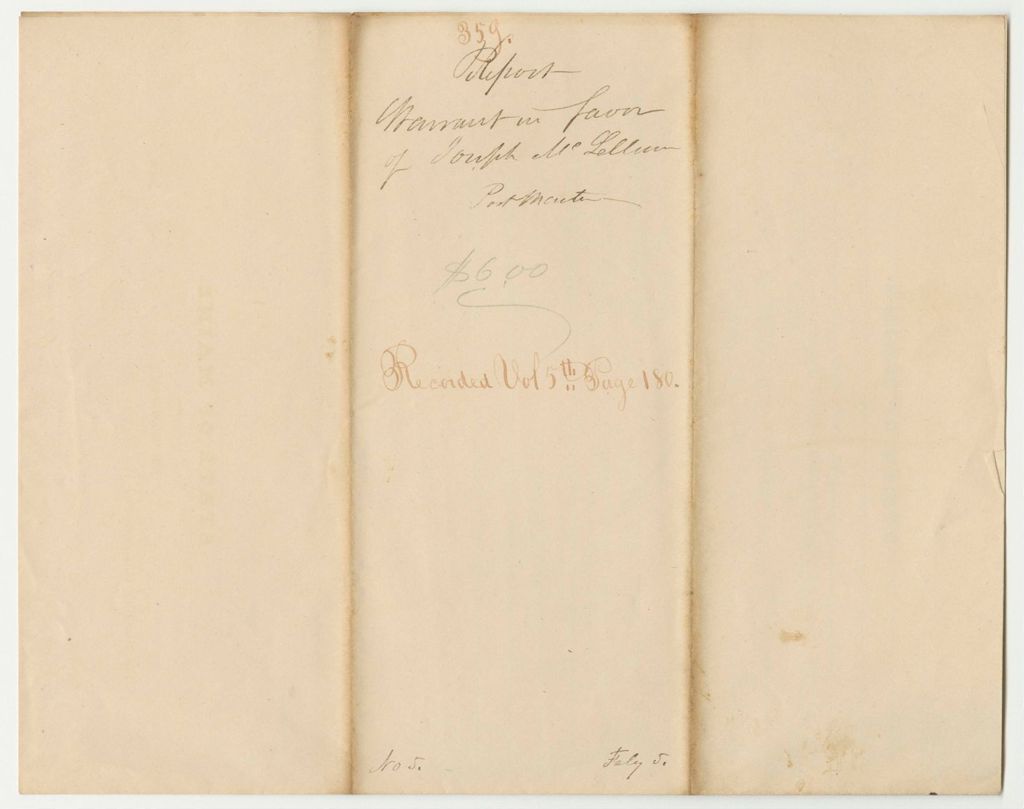 359.
Report
Warrant in favor
of Joseph Mc Lellan
Post Master
$6.00
Recorded Vol 5th Page 180.
No 5. Feby 5.